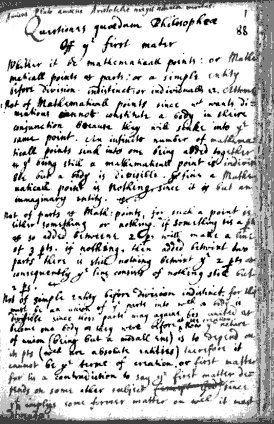 Amicus Plato amicus Aristoteles magis amica veritas
1
88
Questiones quædam Philosophcæ
Off yᵉ first mater
Whither it be mathematicall points: or Mathe
maticall points & parts: or a simple entity
before division indistinct: or individualls
Not of Mathematicall points since wᵗ wants di-
mentions cannot constitute a body in theire
conjunction because they will sinke into yᵉ
same point. An infinite number of mathema
ticall points sink into one being added together
yᵉ being still a mathematicall point is indivisi
ble but a body is divisible.
maticall point is Nothing since it is but an
immaginary entity.
Not of parts & Math: points, for such a point is
either something or nothing. if something tis a pt
& so added betweene 2 pts will make a line
of 3 pts. if nothing, then added betwixt two
parts there is still nothing betwixt yᵉ 2 pts &
consequently yᵉ line consists of nothing still but
2 pts.
Not of simple entity before division indistinct, for this
must be an union of yᵉ parts into wᶜʰ a body is
since those parts may againe bee united &
become one body as they were before
of union (being but a modall ens) is to depend
its pts (wᶜʰ are absolute entitys) therefore it
cannot be yᵉ terme of creation, or first matter
for tis a contradiction to say yᵉ first matter de-
pends on some other subject since
implys some former matter on wᶜʰ it must